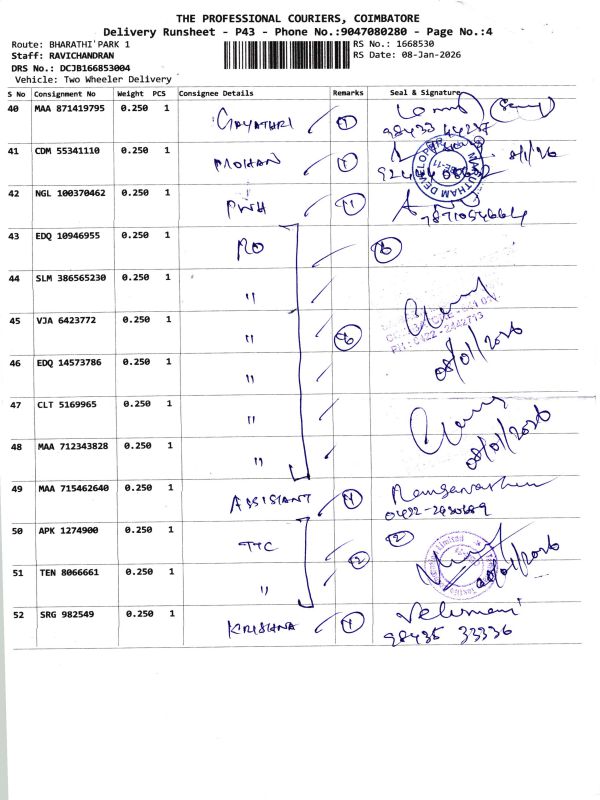 THE PROFESSIONAL COURIERS, COIMBATORE
Delivery Runsheet - P43 - Phone No.:9047080280 - Page No.:4
Route: BHARATHI PARK 1 RS No.: 1668530
Staff: RAVICHANDRAN RS Date: 08-Jan-2026
DRS No.: DCJB166853004
Vehicle: Two Wheeler Delivery
S No Consignment No Weight PCS Consignee Details Remarks Seal & Signature
40 MAA 871419795 0.250 1 GAYATHRI 1
98433 44237
41 CDM 55341110 0.250 1 MOHAN 1 8/1/26
MARUTHAM DEVELOPER
42 NGL 100370462 0.250 1 11
7871054664
43 EDQ 10946955 0.250 1 RO 6
44 SLM 386565230 0.250 1 "
08/01/2026
45 VJA 6423772 0.250 1 " 6
PH: 0422 - 2442713
46 EDQ 14573786 0.250 1 "
47 CLT 5169965 0.250 1 "
08/01/2026
48 MAA 712343828 0.250 1 "
49 MAA 715462640 0.250 1 ASSISTANT 1
50 APK 1274900 0.250 1 TTC 2 2
08/01/2026
51 TEN 8066661 0.250 1 "
52 SRG 982549 0.250 1 KRISHNA 1 Velumani
98435 33336